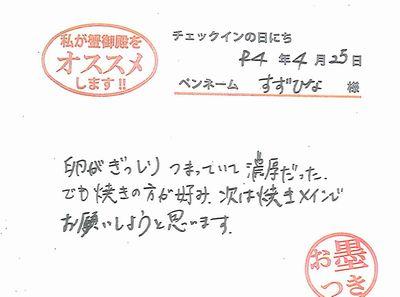 私が蟹御殿を
オススメ
します!!
チェックインの日にち
R4 年 4 月 25 日
ペンネーム すずひな 様
卵がぎっしりつまっていて濃厚だった.
でも焼きの方が好み.次は焼きメインで
お願いしようと思います.
お墨
つき